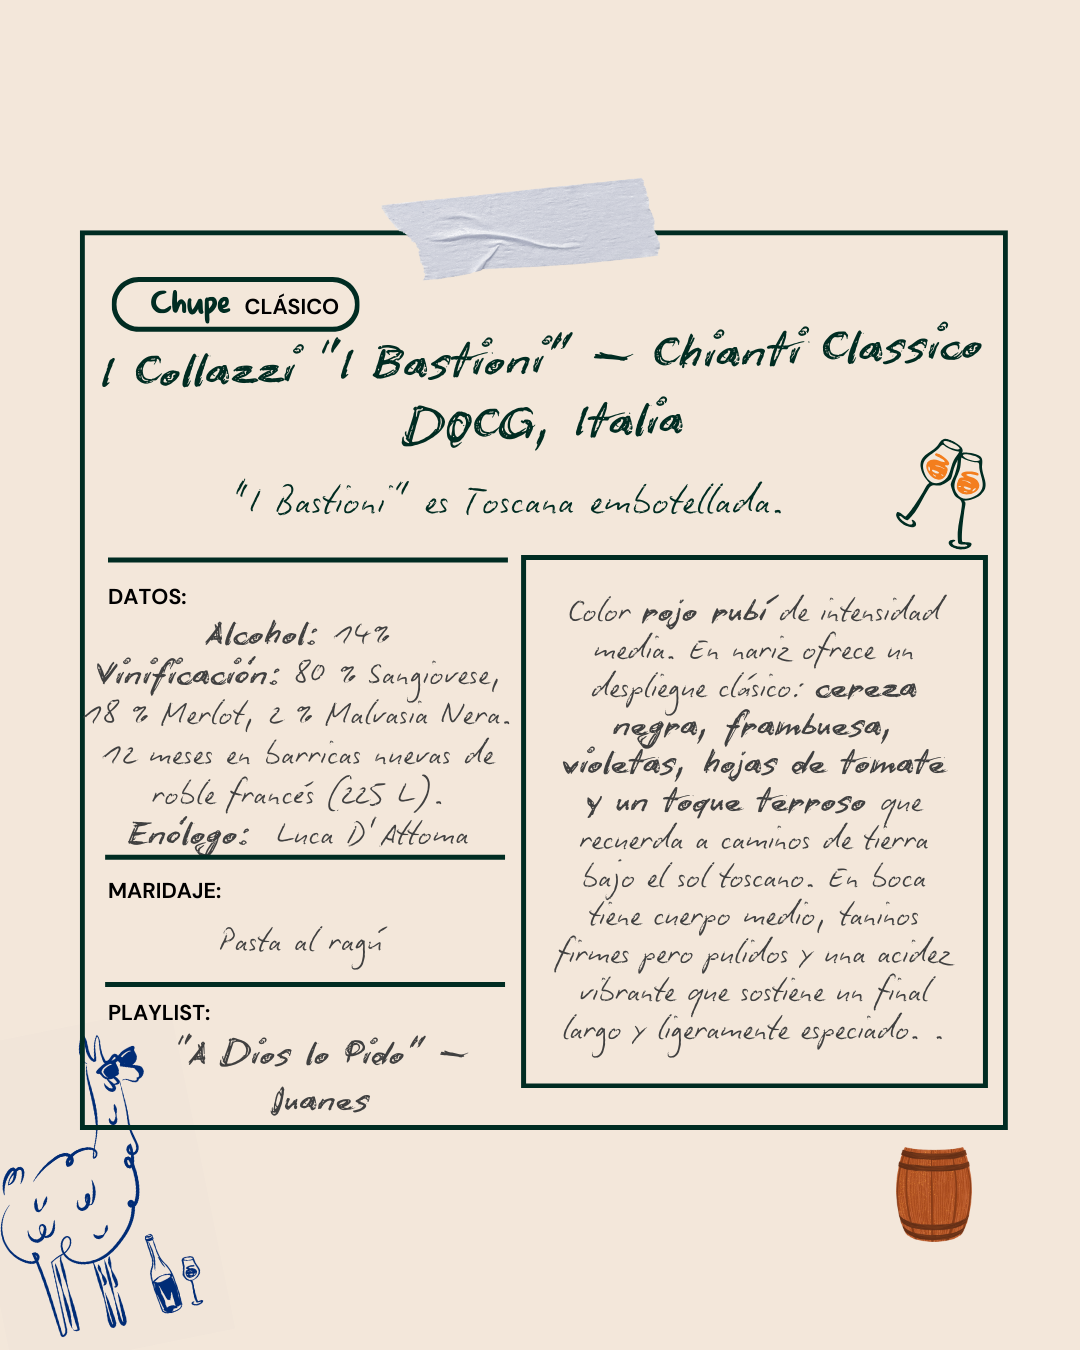 Chupe CLÁSICO
I Collazzi "I Bastioni" – Chianti Classico
DOCG, Italia
"I Bastioni" es Toscana embotellada.
DATOS:
Alcohol: 14%
Vinificación: 80 % Sangiovese,
18 % Merlot, 2 % Malvasia Nera.
12 meses en barricas nuevas de
roble francés (225 L).
Enólogo: Luca D'Attoma
MARIDAJE:
Pasta al ragú
PLAYLIST:
"A Dios lo Pido" –
Juanes
Color rojo rubí de intensidad
media. En nariz ofrece un
despliegue clásico: cereza
negra, frambuesa,
violetas, hojas de tomate
y un toque terroso que
recuerda a caminos de tierra
bajo el sol toscano. En boca
tiene cuerpo medio, taninos
firmes pero pulidos y una acidez
vibrante que sostiene un final
largo y ligeramente especiado. .